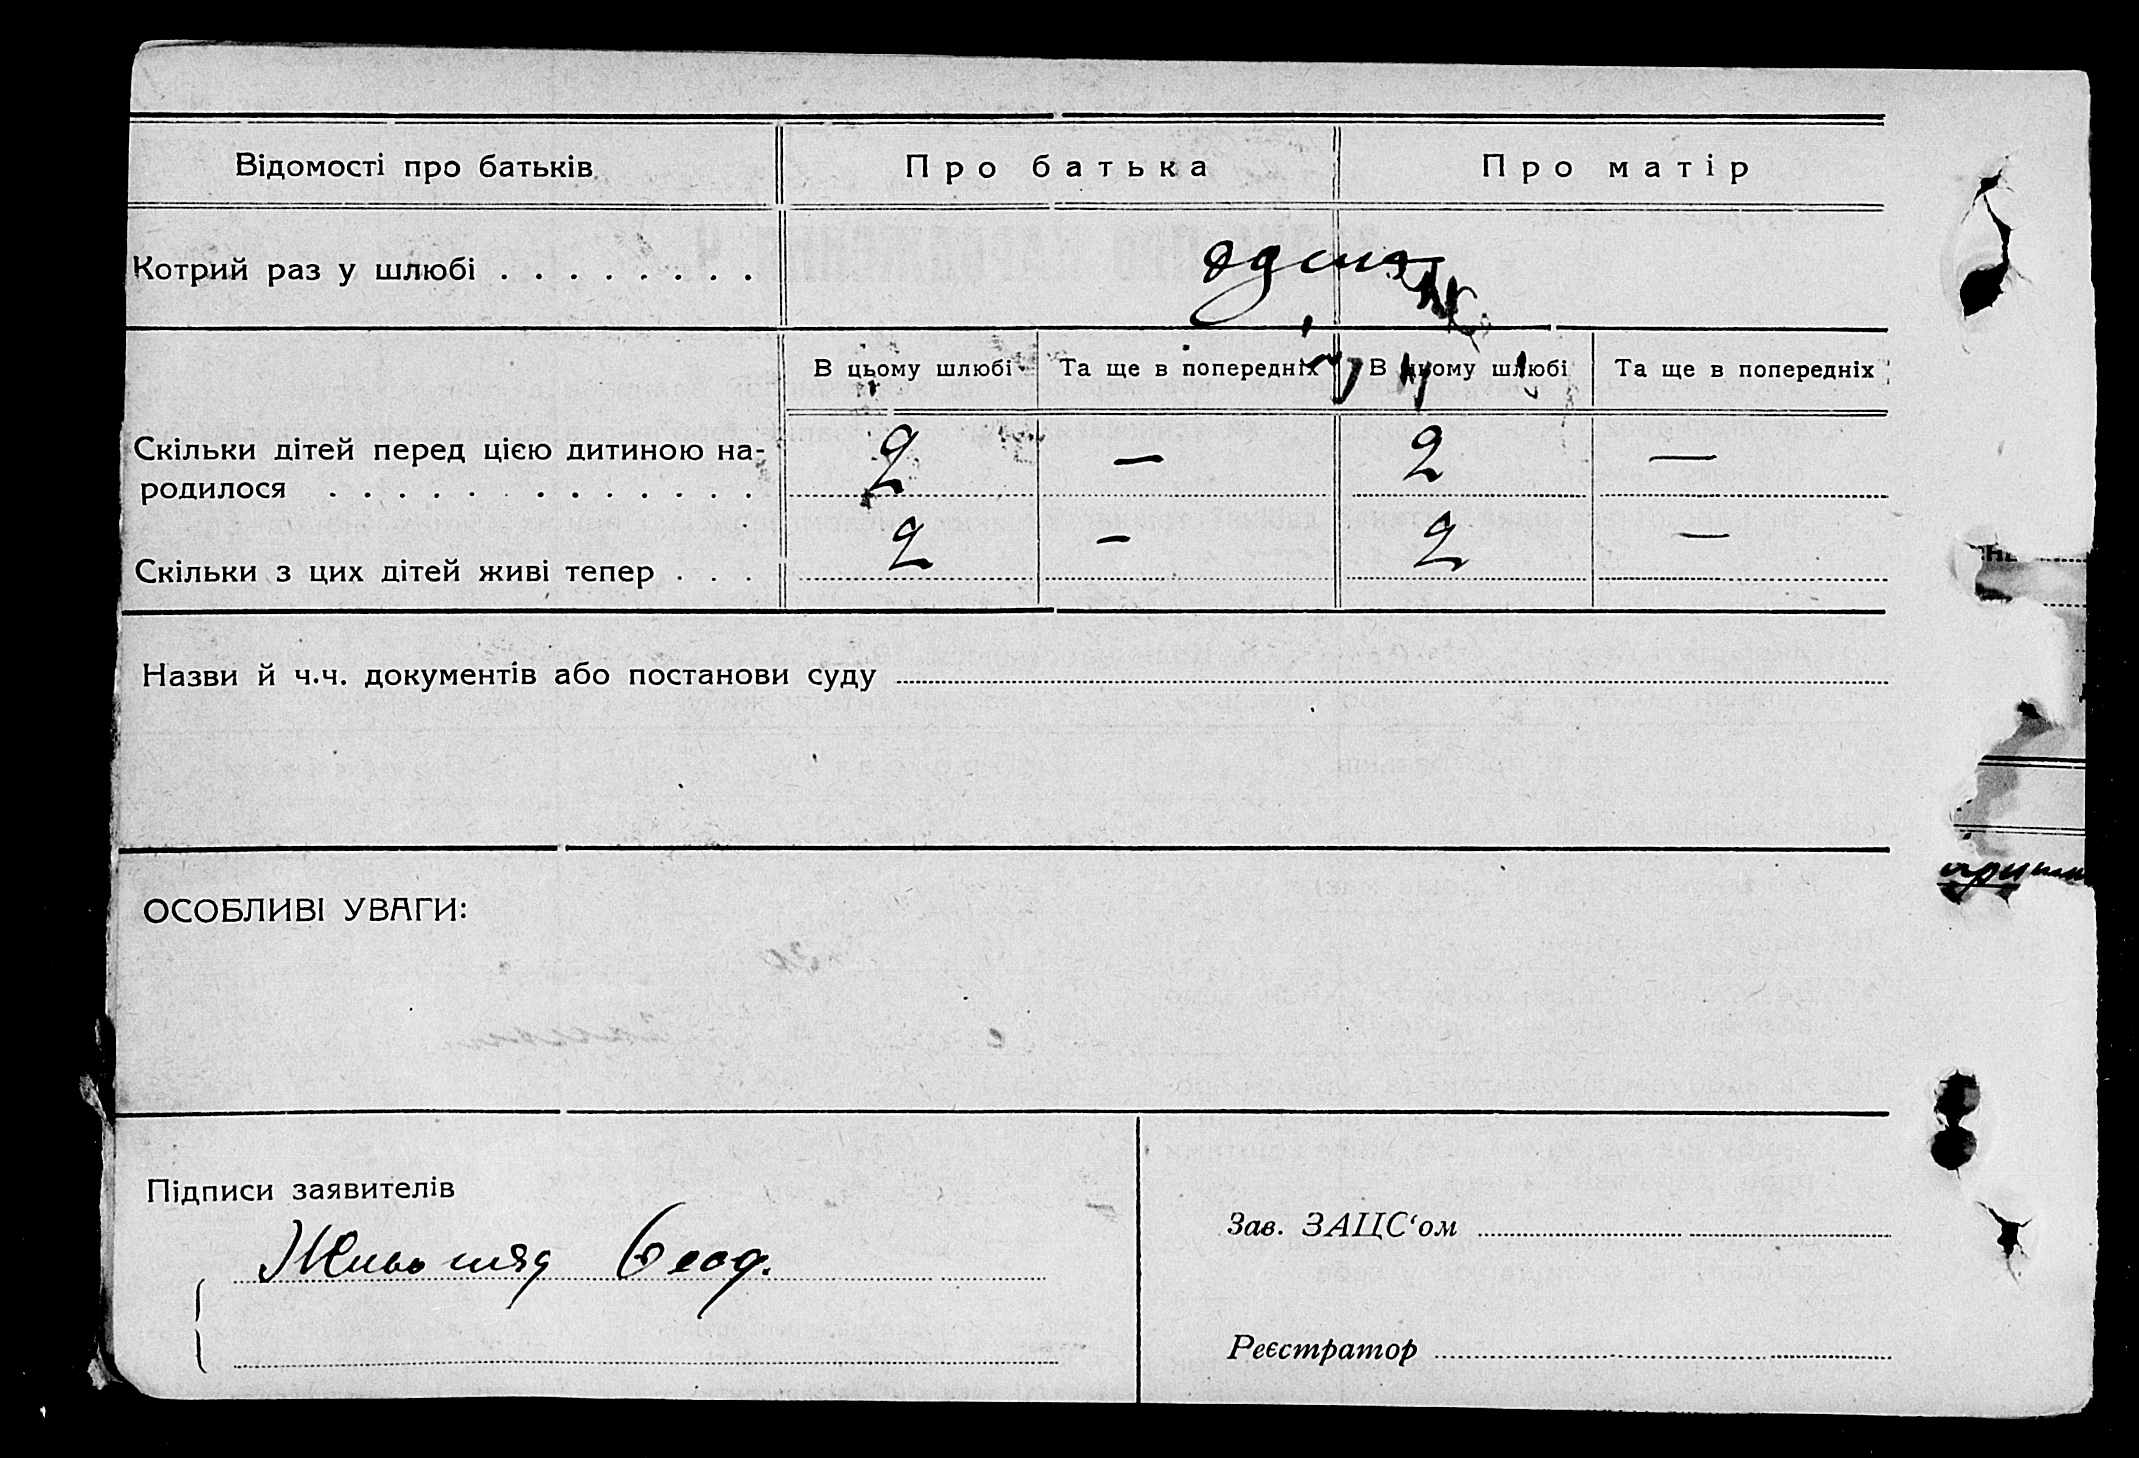 Відомості про батьків
Про батька
Про матір
Котрий раз у шлюбі . . . . . . . .
В цьому шлюбі
Та ще в попередніх
В цьому шлюбі
Та ще в попередніх
Скільки дітей перед цією дитиною на-
родилося . . . . . . . . . . . . .
2 — 2 —
Скільки з цих дітей живі тепер . . .
2 — 2 —
Назви й ч.ч. документів або постанови суду
ОСОБЛИВІ УВАГИ:
Підписи заявителів
Зав. ЗАЦС‘ом
Реєстратор